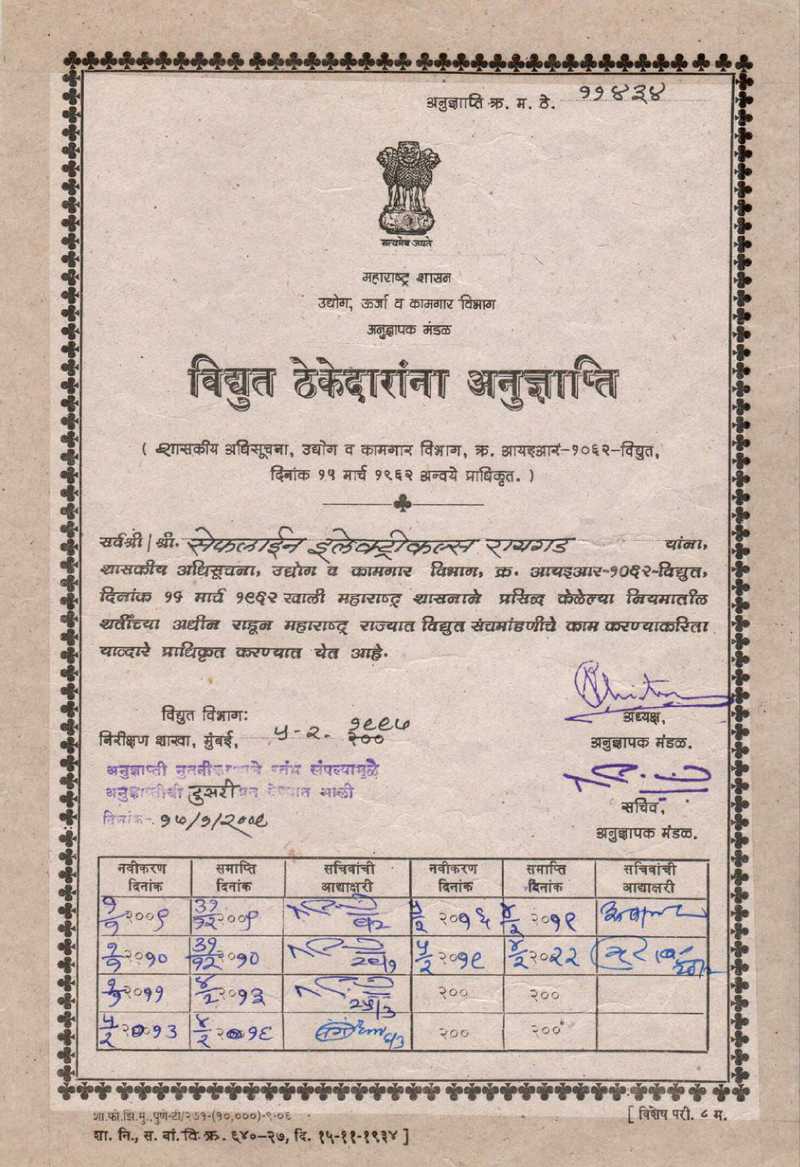 अनुज्ञाप्ति क्र. म. ठे. ११४३४
सत्यमेव जयते
महाराष्ट्र शासन
उद्योग, ऊर्जा व कामगार विभाग
अनुज्ञापक मंडळ
विद्युत ठेकेदारांना अनुज्ञाप्ति
( शासकीय अधिसूचना, उद्योग व कामगार विभाग, क्र. आयइआर-१०६२-विद्युत,
दिनांक १५ मार्च १९६२ अन्वये प्राधिकृत. )
सर्वश्री/श्री. सेफलाईन इलेक्ट्रीकल्स रायगड यांना,
शासकीय अधिसूचना, उद्योग व कामगार विभाग, क्र. आयइआर-१०६२-विद्युत,
दिनांक १५ मार्च १९६२ खाली महाराष्ट्र शासनाने प्रसिद्ध केलेल्या नियमातील
शर्तीच्या अधीन राहून महाराष्ट्र राज्यात विद्युत संचमांडणीचे काम करण्याकरिता
याव्दारे प्राधिकृत करण्यात येत आहे.
विद्युत विभाग:
अध्यक्ष,
निरीक्षण शाखा, मुंबई, ५-२-१९९७
२००
अनुज्ञापक मंडळ.
अनुज्ञाप्ती संपल्यामुळे
अनुज्ञाप्तीची दुसरी प्रत देण्यात आली
सचिव,
दिनांक- १७/१/२००९
अनुज्ञापक मंडळ.
नवीकरण दिनांक समाप्ति दिनांक सचिवांची आद्याक्षरी नवीकरण दिनांक समाप्ति दिनांक सचिवांची आद्याक्षरी
१/१ २००९ ३१/१२ २००९ ५/२ २०१६ ४/२ २०१९
१/१ २०१० ३१/१२ २०१० ५/२ २०१९ ४/२ २०२२
१/१ २०११ ४/२ २०१३ २५/३ २०० २००
५/२ २०१३ ४/२ २०१६ २०० २००
शा.फो.झिं.मु.,पुणे-टी/२७१-(१०,०००)-९-०६
[ विशेष परी. ८ म.
शा. नि., स. बां. वि. क्र. ६४०-२७, दि. १५-११-१९३४ ]